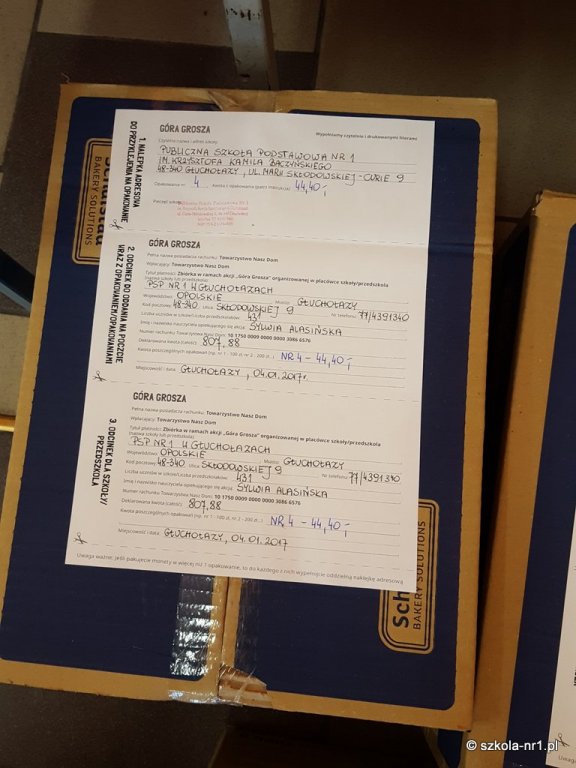 GÓRA GROSZA
Wypełniamy czytelnie i drukowanymi literami
Czytelna nazwa i adres szkoły:
PUBLICZNA SZKOŁA PODSTAWOWA NR 1
IM. KRZYSZTOFA KAMILA BACZYŃSKIEGO
48-340 GŁUCHOŁAZY, UL. MARII SKŁODOWSKIEJ-CURIE 9
Opakowanie nr 4 Kwota z opakowania (patrz instrukcja) 44,40,-
Pieczęć szkoły
1. NALEPKA ADRESOWA
DO PRZYKLEJENIA NA OPAKOWANIE
GÓRA GROSZA
Pełna nazwa posiadacza rachunku: Towarzystwo Nasz Dom
Wpłacający: Towarzystwo Nasz Dom
Tytuł płatności: Zbiórka w ramach akcji „Góra Grosza" organizowanej w placówce szkoły/przedszkola
(nazwa szkoły lub przedszkola):
PSP NR 1 W GŁUCHOŁAZACH
Województwo: OPOLSKIE Miasto: GŁUCHOŁAZY
Kod pocztowy: 48-340 Ulica: SKŁODOWSKIEJ 9 Nr telefonu: 77/4391340
Liczba uczniów w szkole/liczba przedszkolaków: 431
Imię i nazwisko nauczyciela opiekującego się akcją: SYLWIA ALASIŃSKA
Numer rachunku Towarzystwo Nasz Dom: 10 1750 0009 0000 0000 3086 6576
Deklarowana kwota (całość): 807,88
Kwota poszczególnych opakowań (np. nr 1 - 100 zł, nr 2 - 200 zł...) NR 4 - 44,40,-
Miejscowość i data: GŁUCHOŁAZY, 04.01.2017r
2. ODCINEK DO ODDANIA NA POCZCIE
WRAZ Z OPAKOWANIEM/OPAKOWANIAMI
GÓRA GROSZA
Pełna nazwa posiadacza rachunku: Towarzystwo Nasz Dom
Wpłacający: Towarzystwo Nasz Dom
Tytuł płatności: Zbiórka w ramach akcji „Góra Grosza" organizowanej w placówce szkoły/przedszkola
(nazwa szkoły lub przedszkola):
PSP NR 1 W GŁUCHOŁAZACH
Województwo: OPOLSKIE Miasto: GŁUCHOŁAZY
Kod pocztowy: 48-340 Ulica: SKŁODOWSKIEJ 9 Nr telefonu: 77/4391340
Liczba uczniów w szkole/liczba przedszkolaków: 431
Imię i nazwisko nauczyciela opiekującego się akcją: SYLWIA ALASIŃSKA
Numer rachunku Towarzystwo Nasz Dom: 10 1750 0009 0000 0000 3086 6576
Deklarowana kwota (całość): 807,88
Kwota poszczególnych opakowań (np. nr 1 - 100 zł, nr 2 - 200 zł...) NR 4 - 44,40,-
Miejscowość i data: GŁUCHOŁAZY, 04.01.2017
3. ODCINEK DLA SZKOŁY/
PRZEDSZKOLA
Uwaga ważne: jeśli pakujecie monety w więcej niż 1 opakowanie, to do każdego z nich wypełnijcie oddzielną naklejkę adresową
BAKERY SOLUTIONS
Sch
BAKERY SOLUTIONS
© szkola-nr1.pl